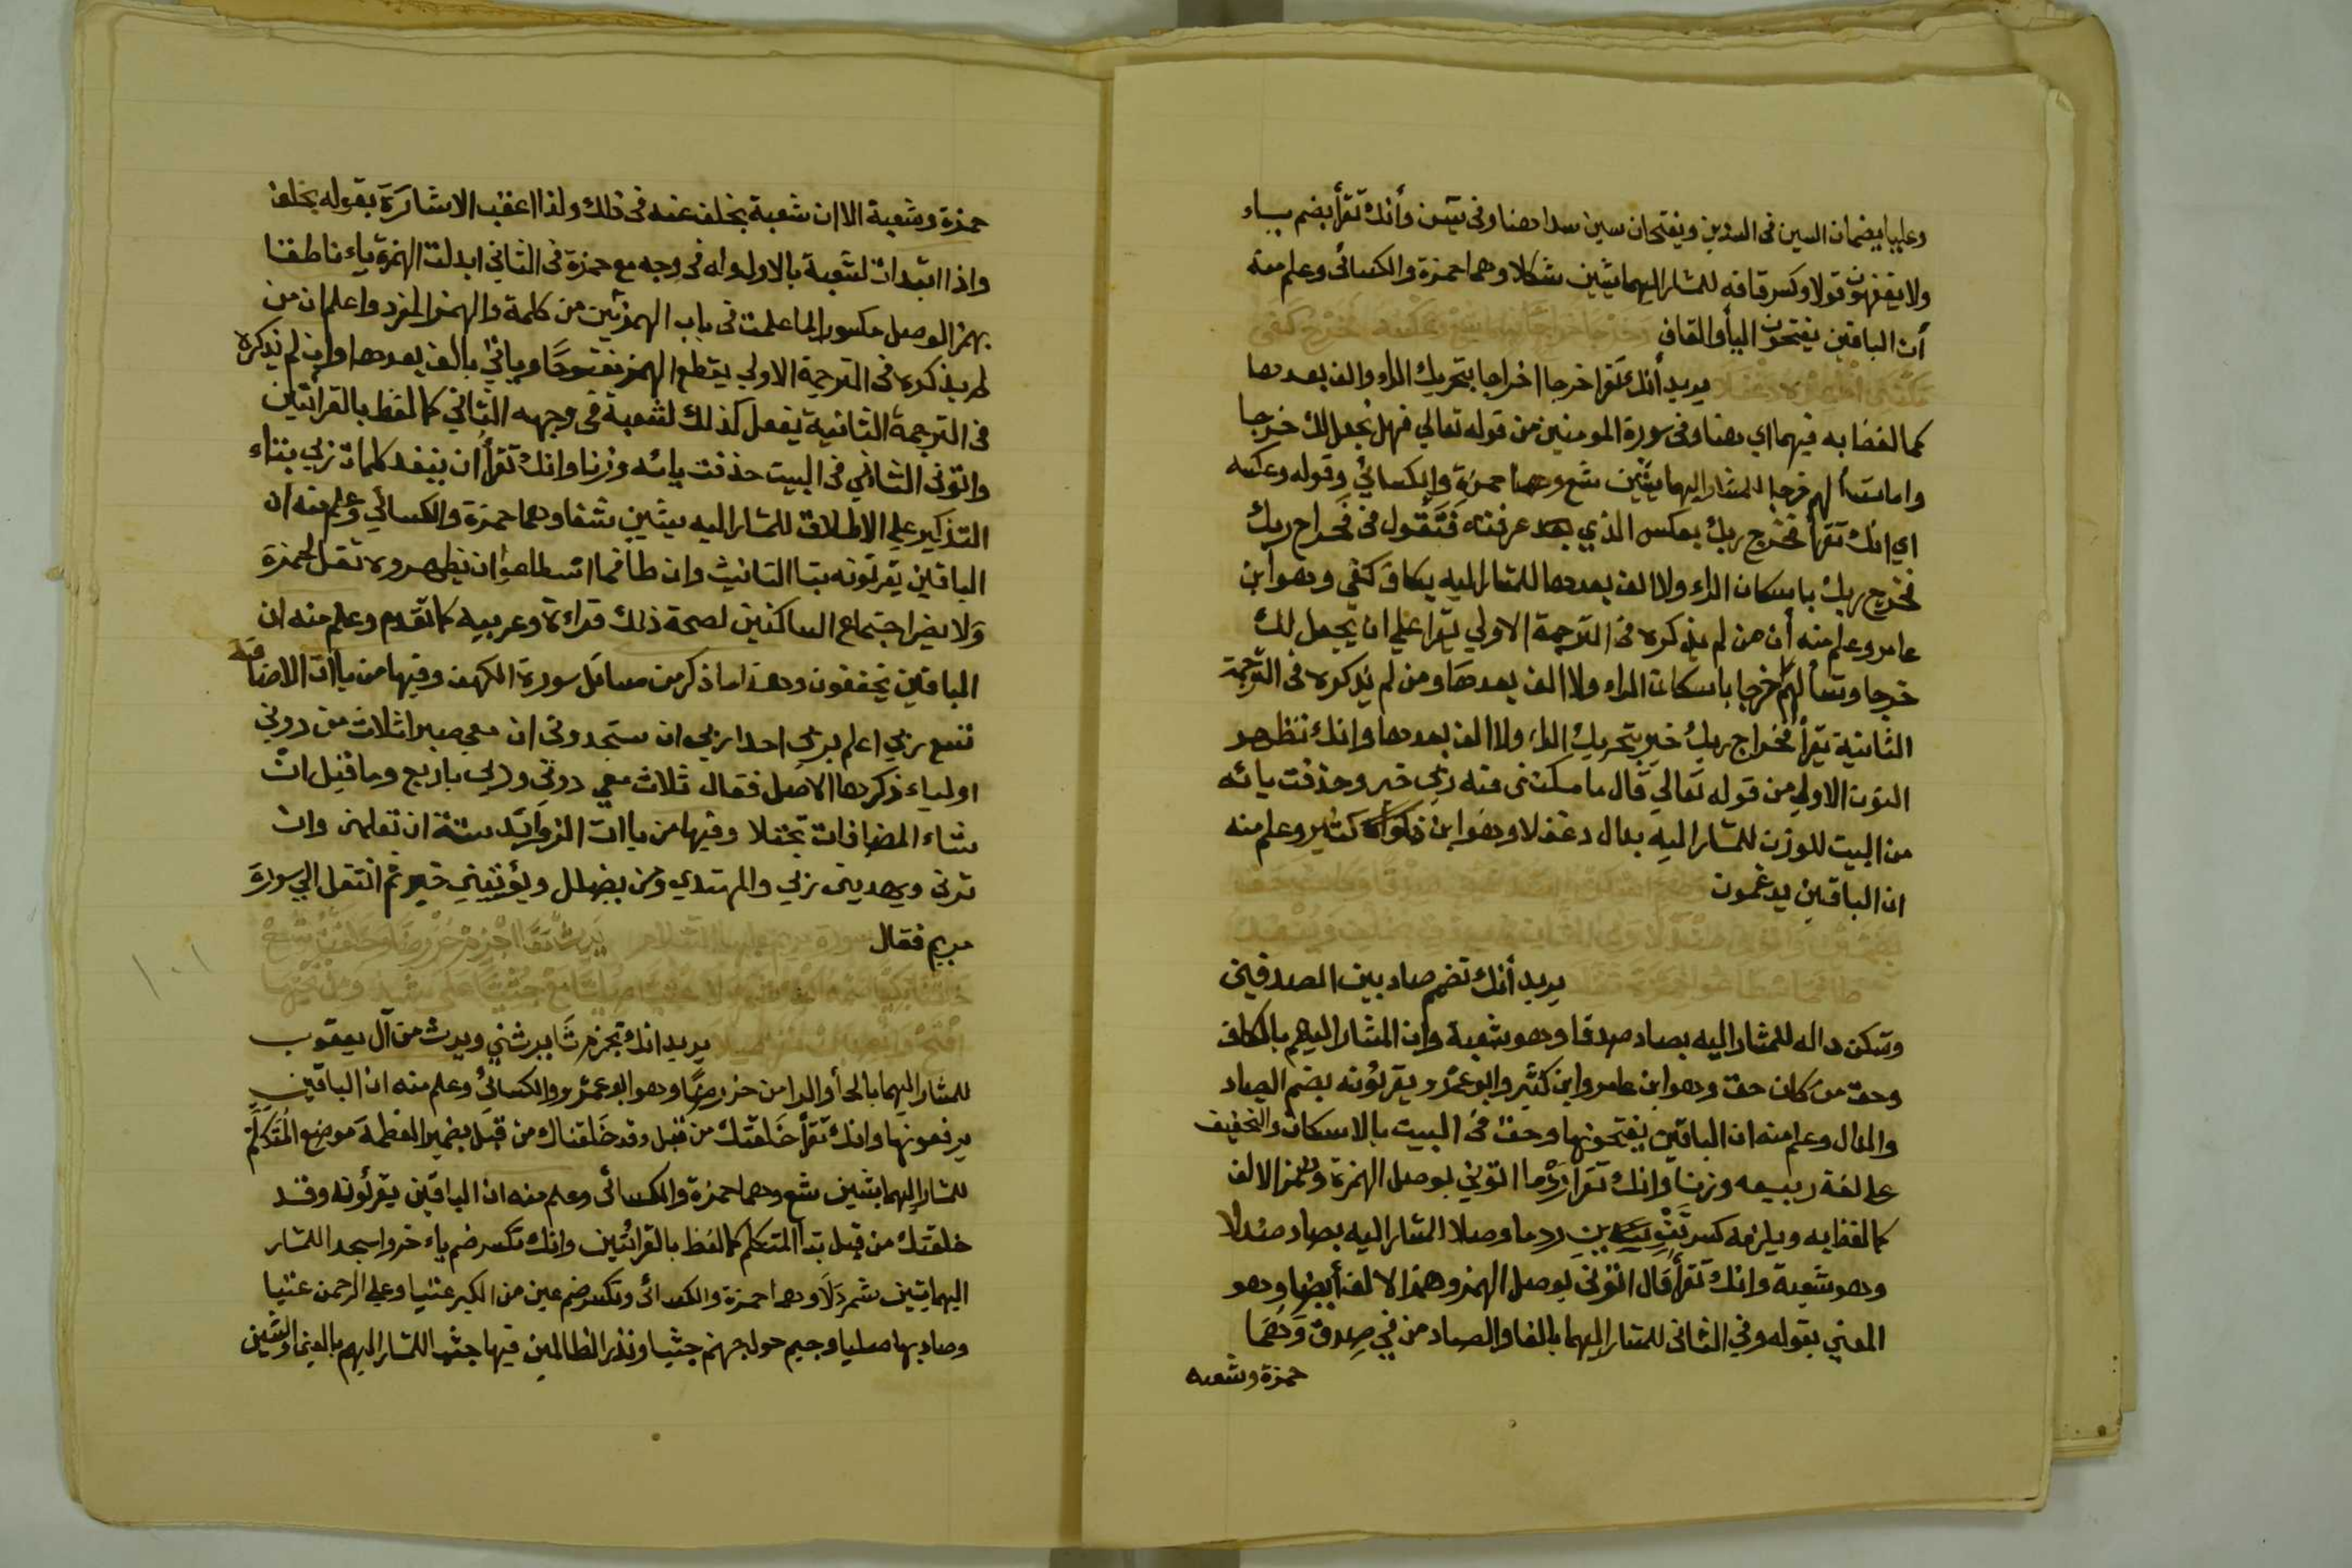 وعليا يضمان السين في السدين ويفتحان سين سدا هنا وفي يس وأنك تقرأ بضم ياء
ولا يفقهون قولا وكسر قافه للمشار اليهما بشين شكلا وهما حمزة والكسائي وعلم منه
أن الباقين يفتحون اليا والقاف
يريد أنك تقرا خرجا اخراجا بتحريك الراء والف بعدها
كما لفظ به فيهما اي هنا وفي سورة المومنين من قوله تعالي فهل نجعل لك خرجا
وام تسألهم خرجا للمشار اليهما بشين شع وهما حمزة والكسائي وقوله وعكسه
اي انك تقرأ فخرج ربك بعكس الذي عرفته فتقول في فخراج ربك
فخرج ربك باسكان الراء ولا الف بعدها للمشار اليه بكاف كفي وهو ابن
عامر وعلم منه أن من لم يذكره في الترجمة الاولي يقرا علي ان يجعل لك
خرجا وتسألهم خرجا باسكان الراء ولا الف بعدها ومن لم يذكره في الترجمة
الثانية يقرأ فخراج ربك خير بتحريك الراء ولا الف بعدها وانك تظهر
النون الاولي من قوله تعالي قال ما مكنني فيه ربي خير وحذفت يائه
من البيت للوزن للمشار اليه بدال دغفلا وهو ابن كثير وعلم منه
ان الباقين يدغمون
يريد أنك تضم صاد بين الصدفين
وتسكن داله للمشار اليه بصاد صدقا وهو شعبة وان المشار اليهم بالكاف
وحق من كان حق وهو ابن عامر وابن كثير وابو عمرو يقرئونه بضم الصاد
والدال وعلم منه ان الباقين يفتحونها وحق في البيت بالاسكان والتخفيف
علي لغة ربيعه وزنا وانك تقرا ردما ائتوني بوصل الهمزة وهمز الالف
كما لفظ به ويلزمه كسر تنوين ردما وصلا للمشار اليه بصاد صندلا
وهو شعبة وانك تقرأ قال ائتوني بوصل الهمز وهمز الالف أيضا وهو
المعني بقوله وفي الثاني للمشار اليهما بالفا والصاد من في صدق وهما
حمزة وشعبه
حمزة وشعبة الا ان شعبة بخلف عنه في ذلك ولذا اعقب الاشارة بقوله بخلف
واذا ابتدات لشعبة بالاول وله في وجه مع حمزة في الثاني ابدلت الهمزة ياء ناطقا
بهمز الوصل مكسورا لما علمت في باب الهمزتين من كلمة والهمز المفرد واعلم ان من
لم يذكره في الترجمة الاولي يقطع الهمز مفتوحا وياتي بالف بعدها وان لم يذكره
في الترجمة الثانية يفعل كذلك لشعبة في وجهه الثاني كما لفظ بالقراتين
وائتوني الثاني في البيت حذفت يائه وزنا وانك تقرأ ان ينفد كلمات ربي بتاء
التذكير علي الاطلاق للمشار اليه بشين شفا وهما حمزة والكسائي وعلم منه ان
الباقين يقرئونه بتا التانيث وان طا فما اسطاعوا ان يظهروه ثقل لحمزة
ولا يضر اجتماع الساكنين لصحة ذلك قراءة وعربيه كما تقدم وعلم منه ان
الباقين يخففون وهذا ما ذكر من مسائل سورة الكهف وفيها من ياات الاضافة
تسع ربي اعلم بربي احدا ربي ان ستجدوني ان معي صبرا ثلاث من دوني
اولياء ذكرها الاصل فقال ثلاث معي دوني وربي باربع وما قبل ان
شاء المضافات تجتلا وفيها من ياات الزوائد ستة ان تعلمن وان
ترني ويهدين ربي والمهتدي ومن يضلل ويؤتيني خير ثم انتقل الي سورة
مريم فقال
يريد انك تجزم ثا يرثني ويرث من آل يعقوب
للمشار اليهما بالحأ والرا من حز رضا وهو ابو عمرو والكسائي وعلم منه ان الباقين
يرفعونها وانك تقرأ خلقتك من قبل وقد خلقناك من قبل بضمير العظمة موضع المتكلم
للمشار اليهما بشين شع وهما حمزة والكسائي وعلم منه ان الباقين يقرئونه وقد
خلقتك من قبل بتا المتكلم كما لفظ بالقرائتين وانك تكسر ضم ياء خروا سجدا للمشار
اليهما بشين شمردلا وهما حمزة والكسائي وتكسر ضم عين من الكبر عتيا وعلي الرحمن عتيا
وصاد بها صليا وجيم حول جهنم جثيا ونذر الظالمين فيها جثيا للمشار اليهم بالعين والشين